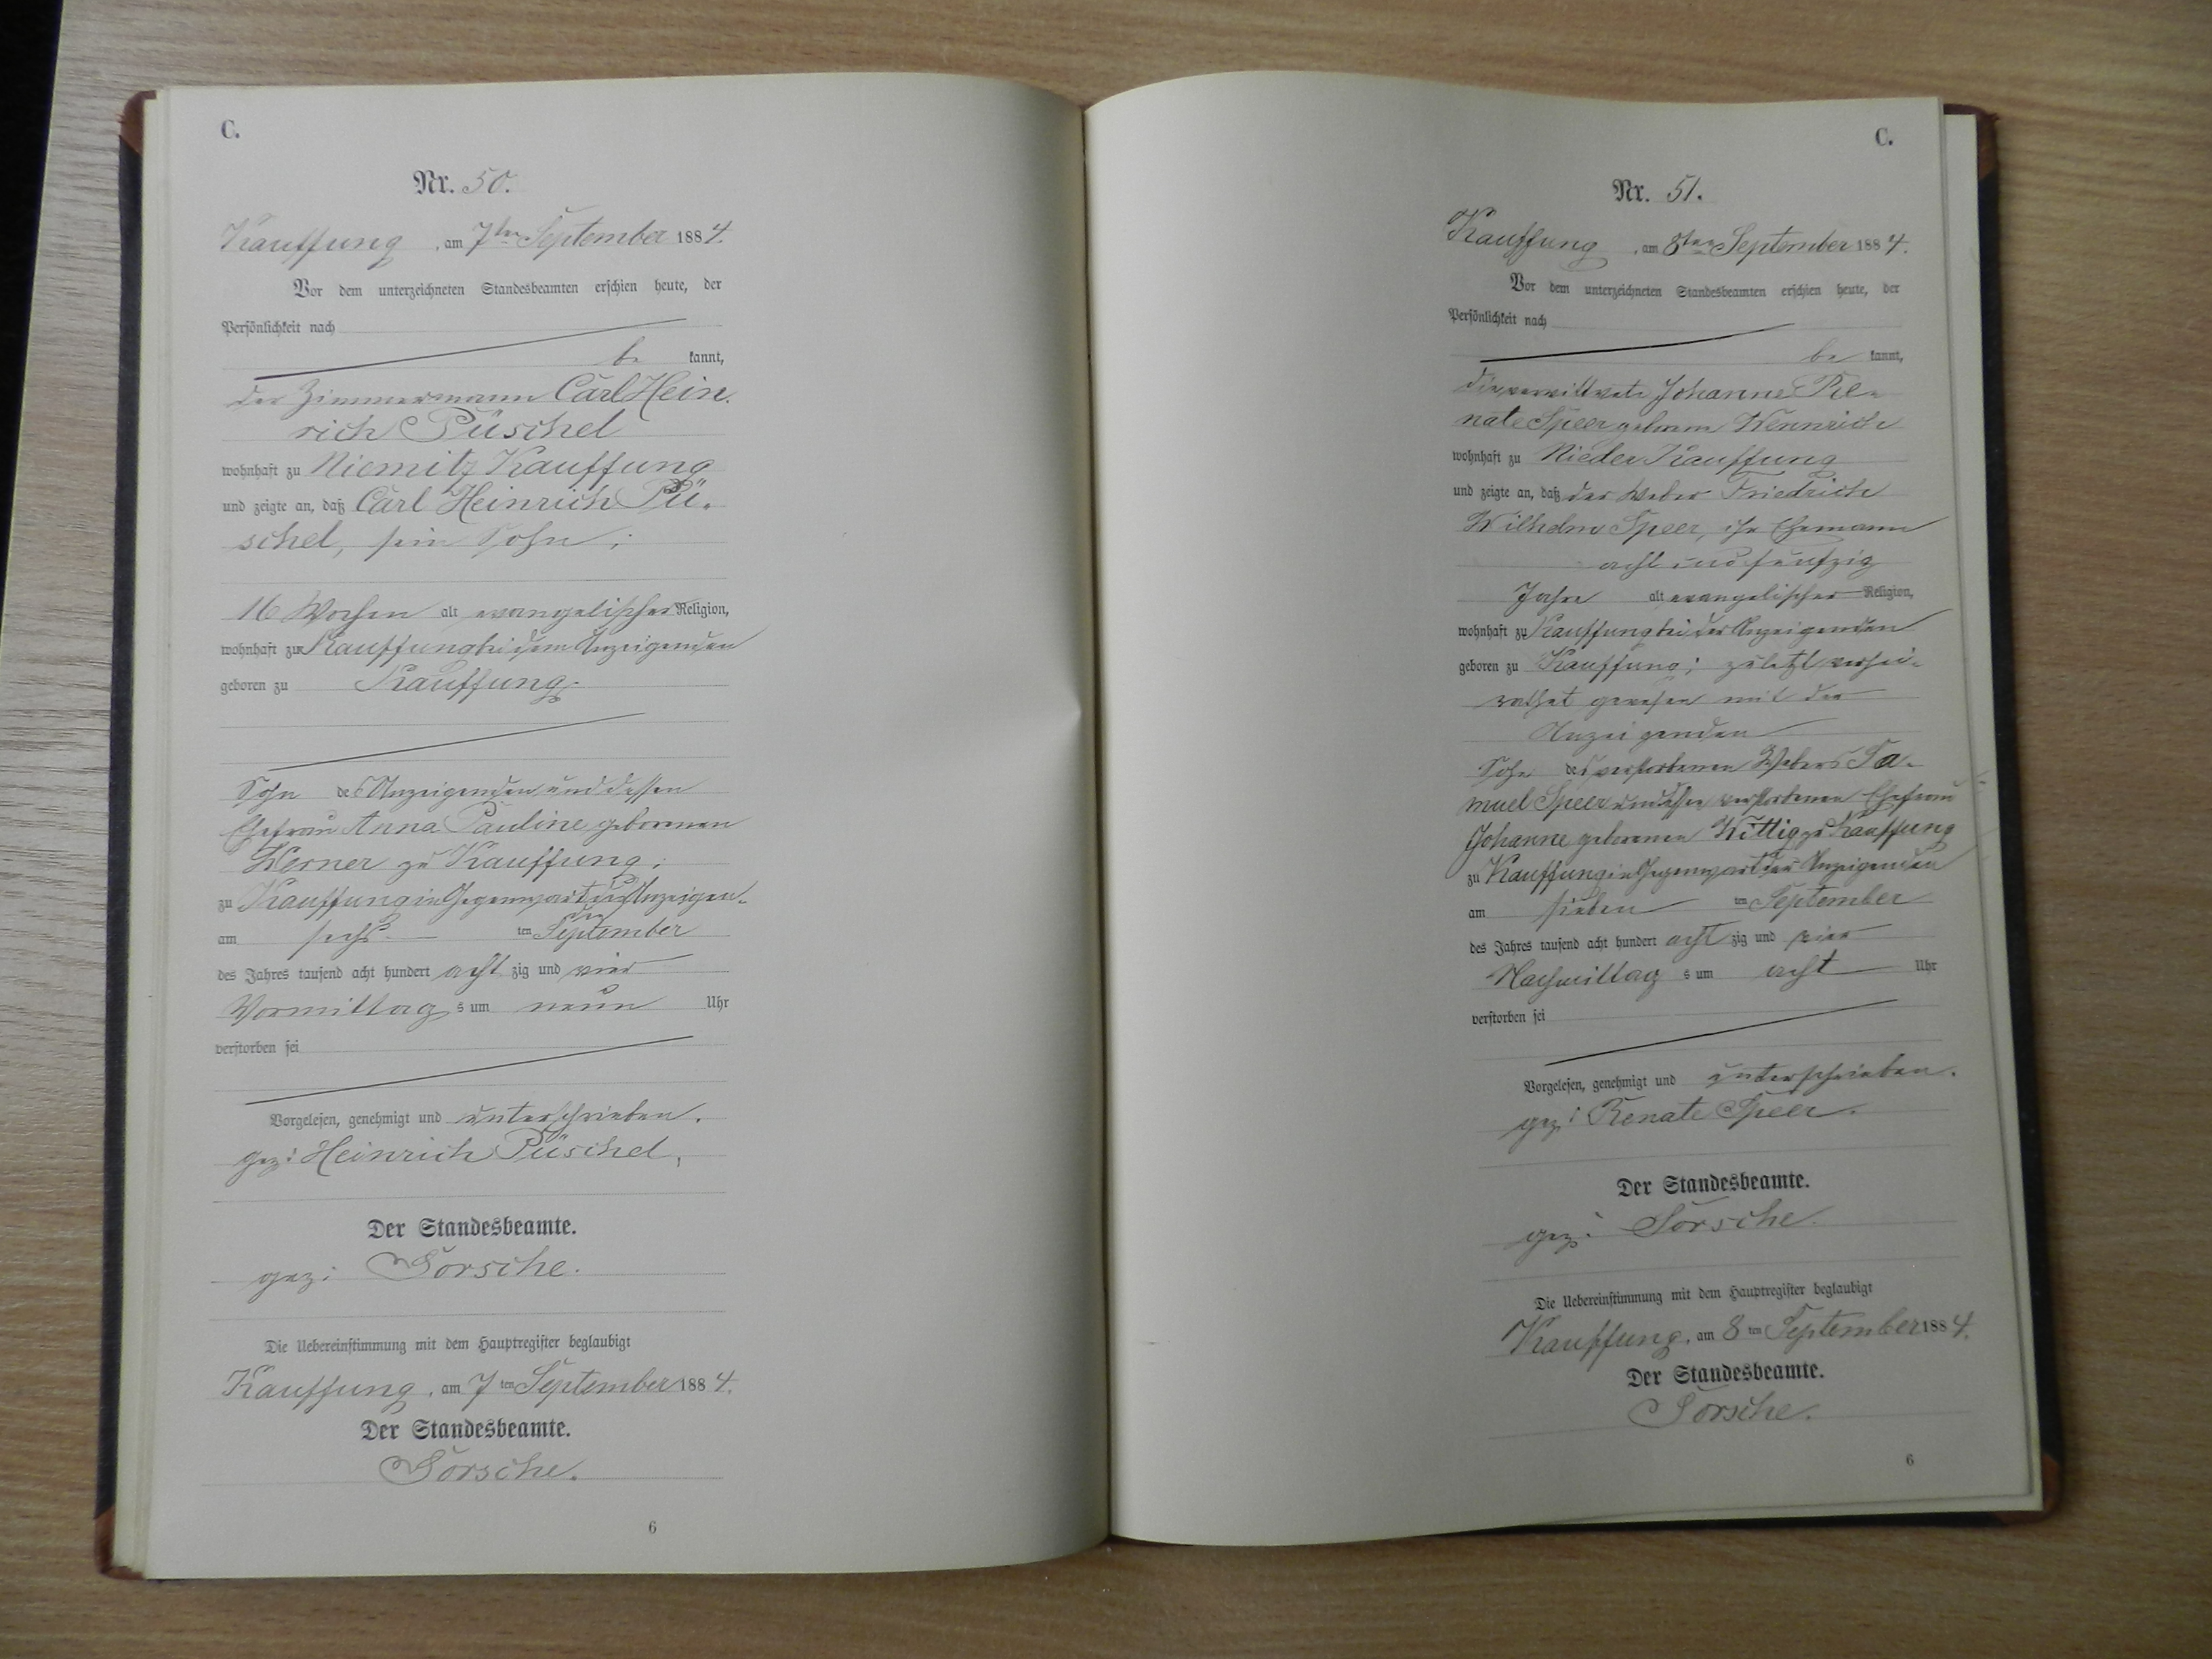 C.
Nr. 50.
Kauffung, am 7ten September 1884.
Vor dem unterzeichneten Standesbeamten erschien heute, der
Persönlichkeit nach
be kannt,
der Zimmermann Carl Hein-
rich Püschel
wohnhaft zu Niemitz Kauffung
und zeigte an, daß Carl Heinrich Pü-
schel, sein Sohn,
16 Wochen alt evangelischer Religion,
wohnhaft zu Kauffung bei dem Anzeigenden
geboren zu Kauffung.
Sohn des Anzeigenden und dessen
Ehefrau Anna Pauline geborenen
Werner zu Kauffung.
zu Kauffung in Gegenwart des Anzeigen-
den
am sechs ten September
des Jahres tausend acht hundert acht zig und vier
Vormittag s um neun Uhr
verstorben sei
Vorgelesen, genehmigt und unterschrieben.
gez: Heinrich Püschel,
Der Standesbeamte.
gez: Sorsche.
Die Uebereinstimmung mit dem Hauptregister beglaubigt
Kauffung, am 7 ten September 1884.
Der Standesbeamte.
Sorsche.
6
C.
Nr. 51.
Kauffung, am 8ten September 1884.
Vor dem unterzeichneten Standesbeamten erschien heute, der
Persönlichkeit nach
be kannt,
die verwittwete Johanne Re-
nate Speer geborene Wennrich
wohnhaft zu Nieder Kauffung
und zeigte an, daß der Weber Friedrich
Wilhelm Speer, ihr Ehemann
acht und fünfzig
Jahre alt evangelischer Religion,
wohnhaft zu Kauffung bei der Anzeigenden
geboren zu Kauffung; zuletzt verhei-
rathet gewesen mit der
Anzeigenden
Sohn des verstorbenen Webers Sa-
muel Speer und dessen verstorbenen Ehefrau
Johanne geborenen Wittig zu Kauffung
zu Kauffung in Gegenwart der Anzeigenden
am sieben ten September
des Jahres tausend acht hundert acht zig und vier
Nachmittag s um acht Uhr
verstorben sei
Vorgelesen, genehmigt und unterschrieben.
gez: Renate Speer.
Der Standesbeamte.
gez: Sorsche.
Die Uebereinstimmung mit dem Hauptregister beglaubigt
Kauffung, am 8 ten September 1884.
Der Standesbeamte.
Sorsche.
6